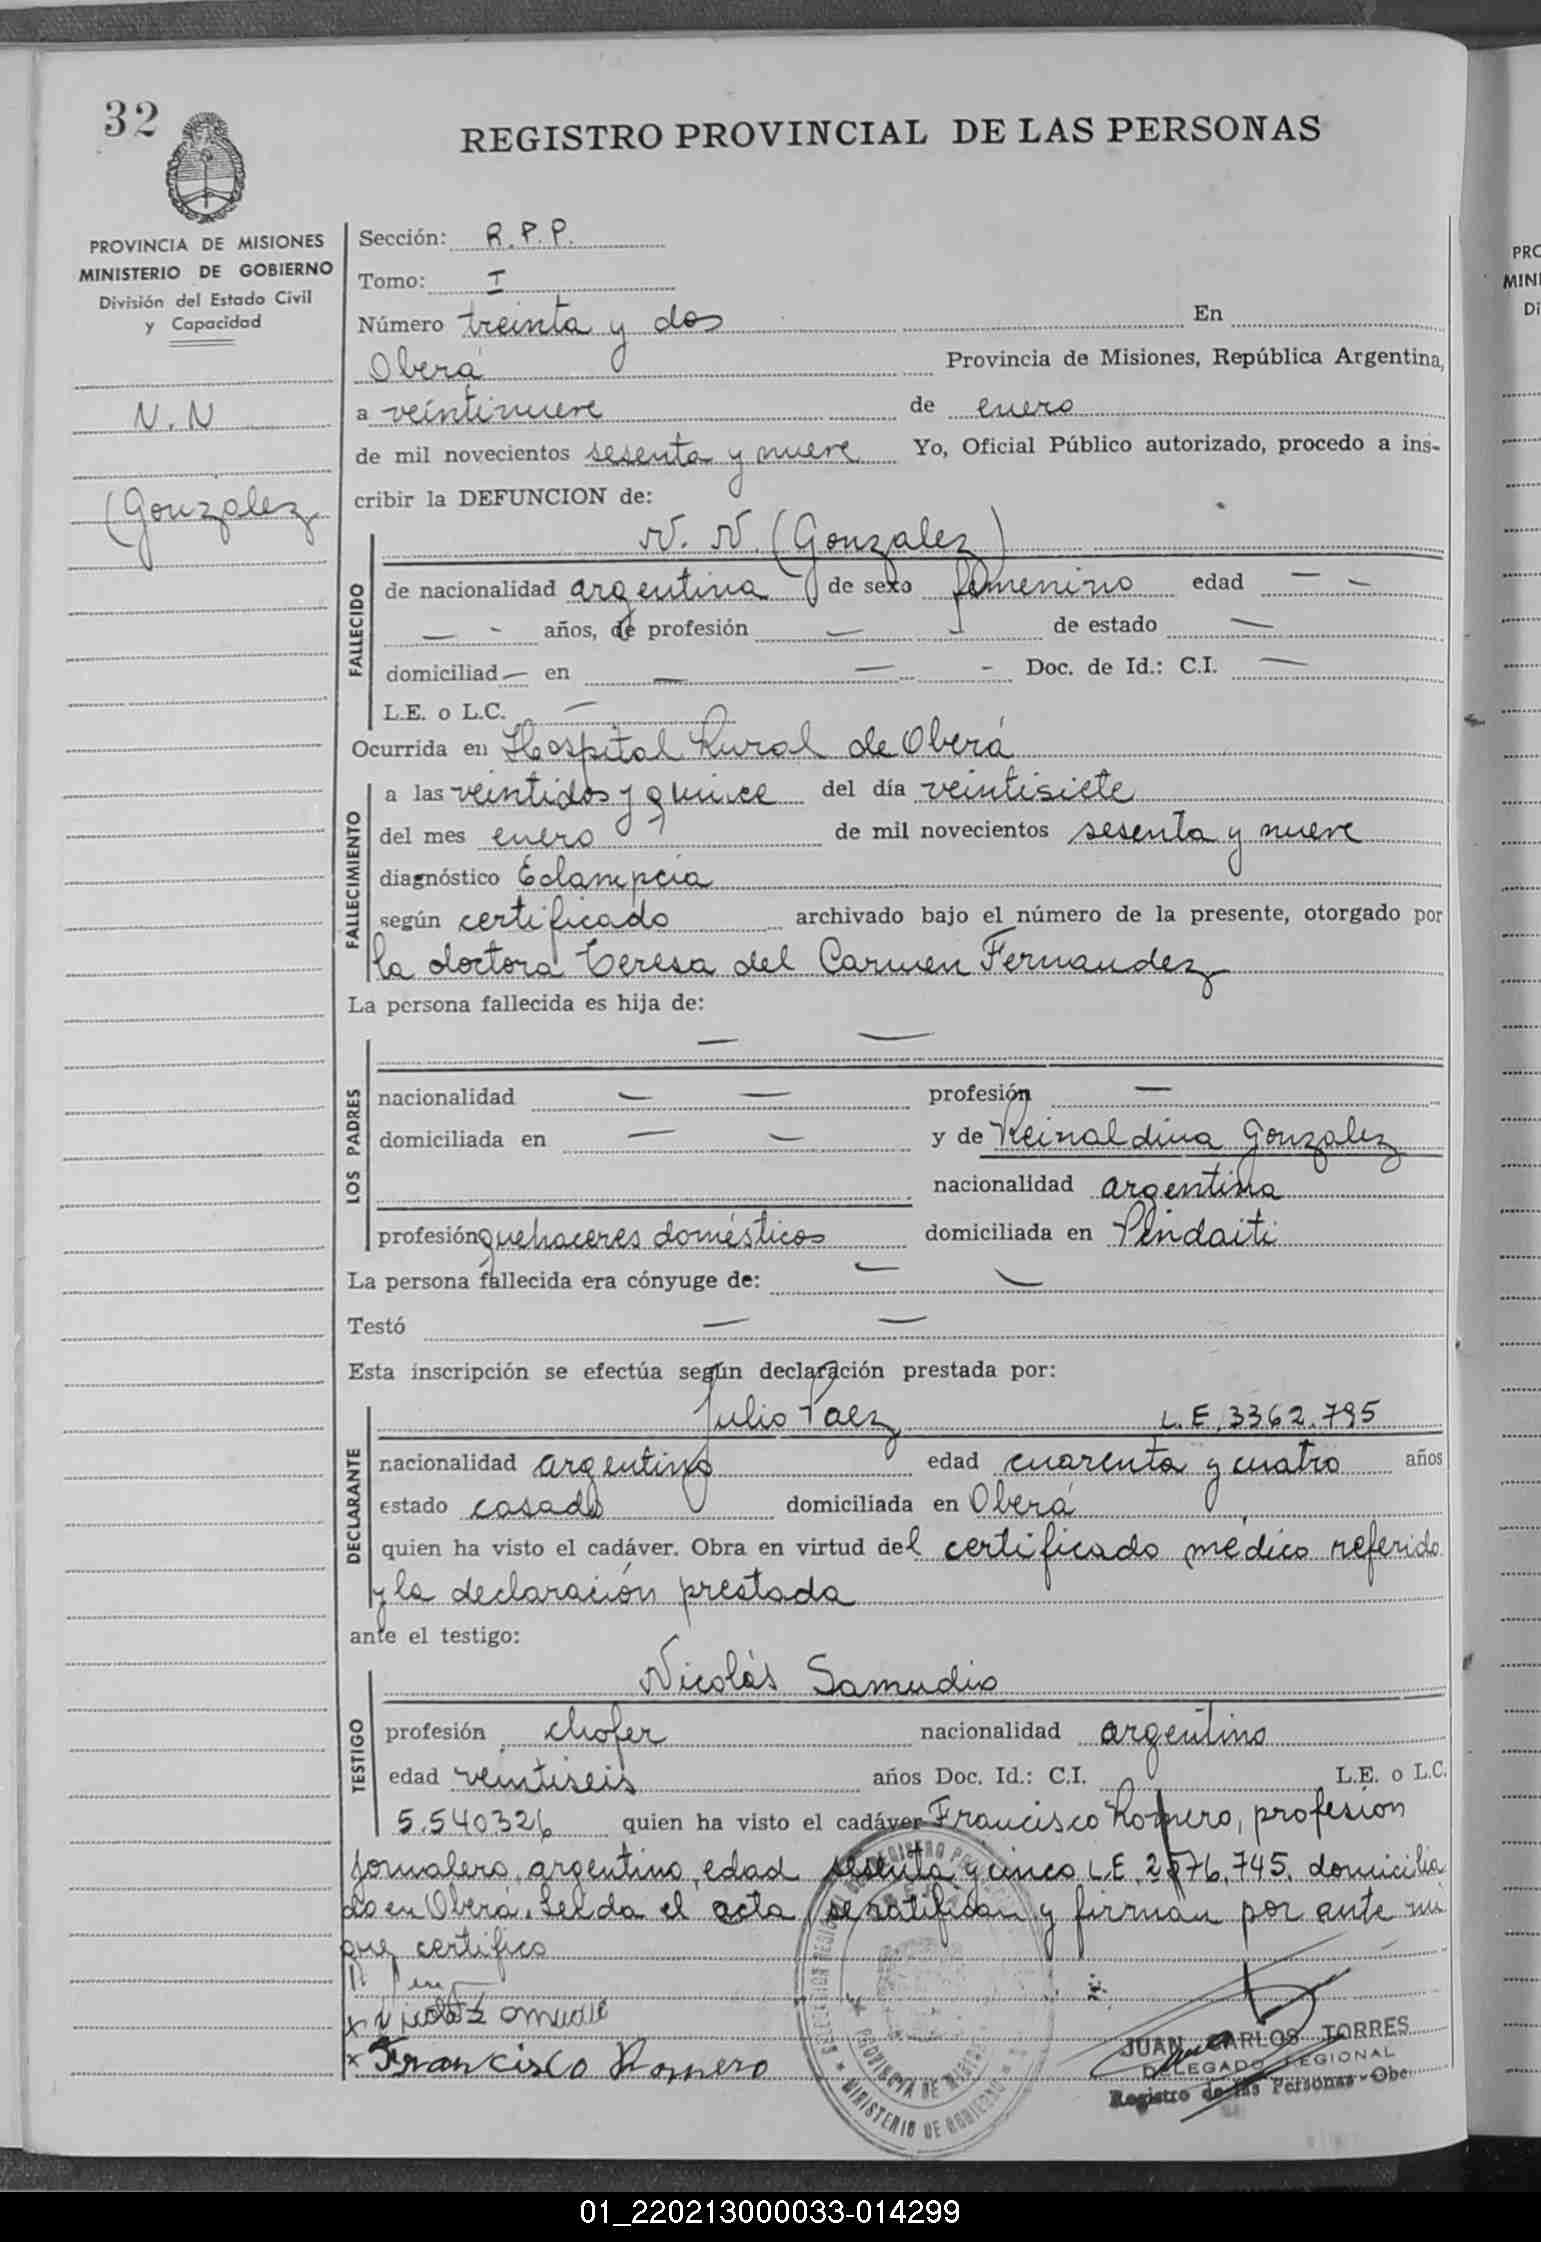 32
REGISTRO PROVINCIAL DE LAS PERSONAS
PROVINCIA DE MISIONES
MINISTERIO DE GOBIERNO
División del Estado Civil
y Capacidad
N.N
(Gonzalez
Sección: R.P.P.
Tomo: I
Número treinta y dos En
Oberá Provincia de Misiones, República Argentina,
a veintinueve de enero
de mil novecientos sesenta y nueve Yo, Oficial Público autorizado, procedo a ins-
cribir la DEFUNCION de:
FALLECIDO
N. N. (Gonzalez)
de nacionalidad argentina de sexo femenino edad — —
— - años, de profesión — - de estado —
domiciliad — en — — - Doc. de Id.: C.I. —
L.E. o L.C. —
Ocurrida en Hospital Rural de Oberá
FALLECIMIENTO
a las veintidos y quince del día veintisiete
del mes enero de mil novecientos sesenta y nueve
diagnóstico Eclampcia
según certificado archivado bajo el número de la presente, otorgado por
la doctora Teresa del Carmen Fernandez
La persona fallecida es hija de:
LOS PADRES
— —
nacionalidad — — profesión —
domiciliada en — — y de Reinaldina Gonzalez
nacionalidad argentina
profesión quehaceres domésticos domiciliada en Pindaiti
La persona fallecida era cónyuge de: — —
Testó — —
Esta inscripción se efectúa según declaración prestada por:
DECLARANTE
Julio Paez L.E. 3362.795
nacionalidad argentino edad cuarenta y cuatro años
estado casado domiciliada en Oberá
quien ha visto el cadáver. Obra en virtud del certificado médico referido
y la declaración prestada
ante el testigo:
TESTIGO
Nicolás Samudio
profesión chofer nacionalidad argentino
edad veintiseis años Doc. Id.: C.I. L.E. o L.C.
5.540326 quien ha visto el cadáver Francisco Romero, profesión
jornalero, argentino, edad sesenta y cinco L.E. 2576.745. domicilia
do en Oberá. Leida el acta, se ratifican y firman por ante mi
que certifico
Francisco Romero
PROVINCIA DE MISIONES
MINISTERIO DE GOBIERNO
JUAN CARLOS TORRES
DELEGADO REGIONAL
Registro de las Personas - Obe
PRO
MINI
Di
01_220213000033-014299